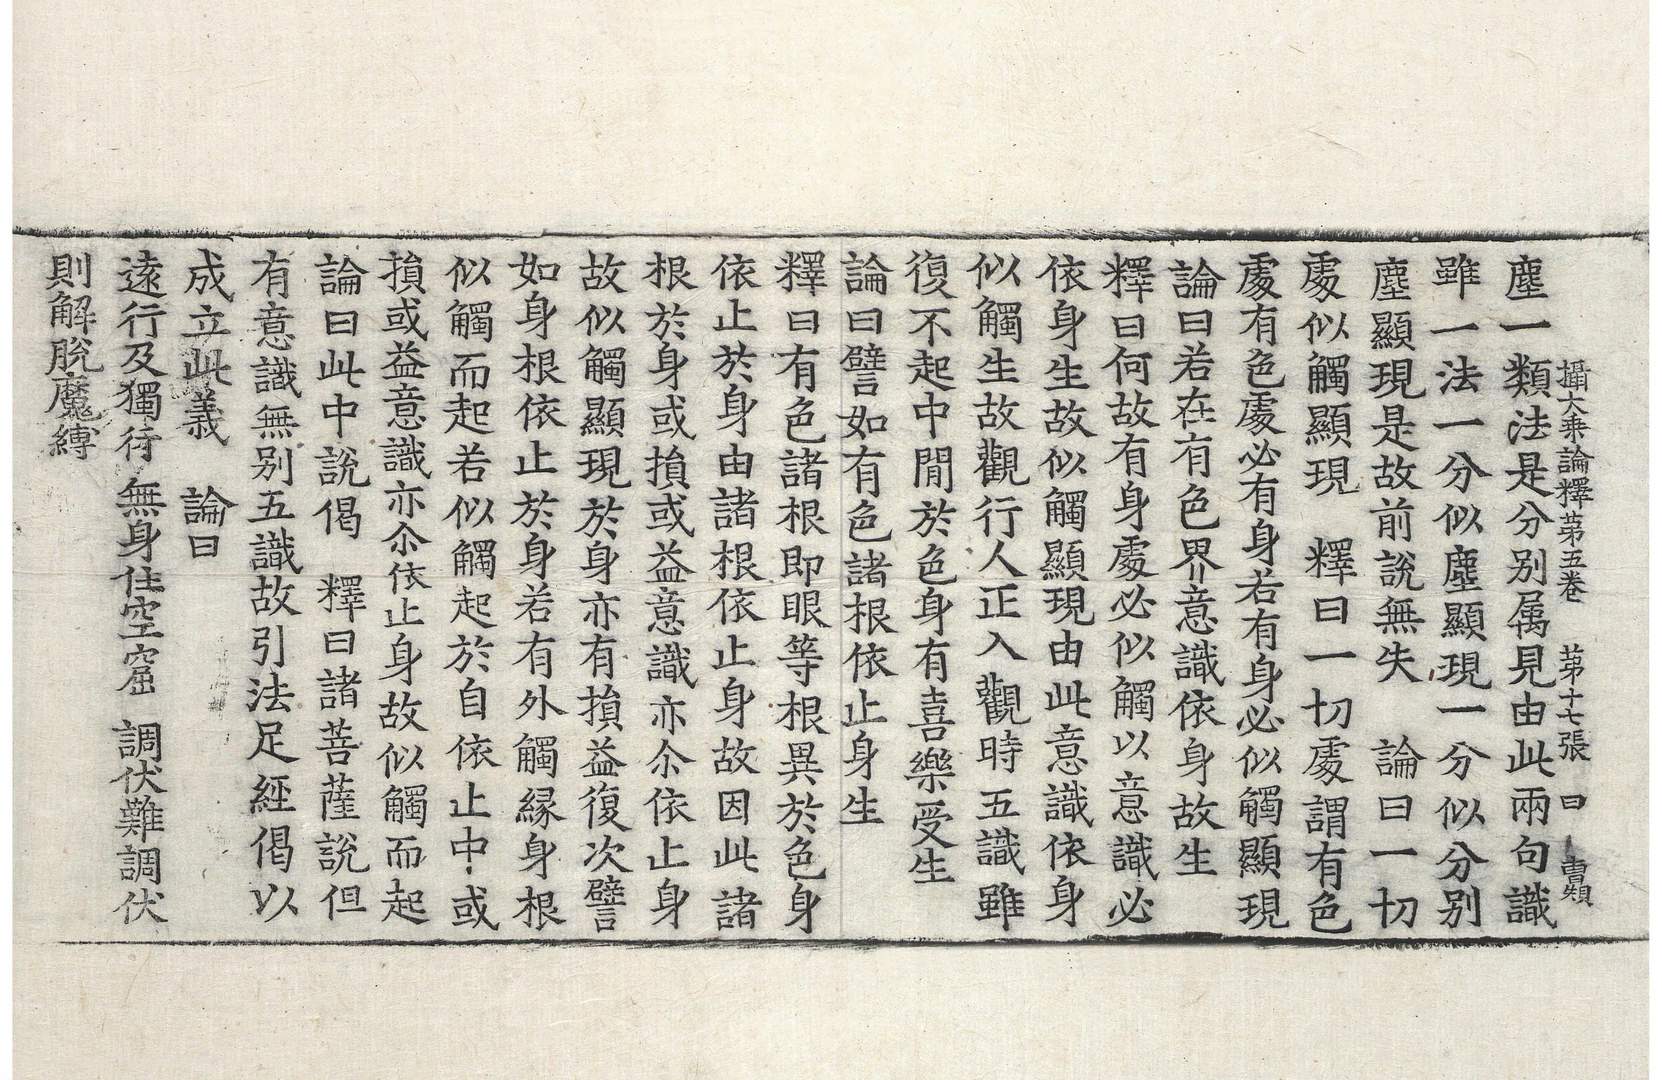 攝大乗論釋第五卷 第十七張 曰 曺頬
塵一類法是分别属見由此兩句識
雖一法一分似塵顯現一分似分别
塵顯現是故前說無失 論曰一切
處似觸顯現 釋曰一切處謂有色
處有色處必有身若有身必似觸顯現
論曰若在有色界意識依身故生
釋曰何故有身處必似觸以意識必
依身生故似觸顯現由此意識依身
似觸生故觀行人正入觀時五識雖
復不起中閒於色身有喜樂受生
論曰譬如有色諸根依止身生
釋曰有色諸根即眼等根異於色身
依止於身由諸根依止身故因此諸
根於身或損或益意識亦尒依止身
故似觸顯現於身亦有損益復次譬
如身根依止於身若有外觸縁身根
似觸而起若似觸起於自依止中或
損或益意識亦尒依止身故似觸而起
論曰此中說偈 釋曰諸菩薩說但
有意識無别五識故引法足經偈以
成立此義 論曰
遠行及獨行 無身住空窟 調伏難調伏
則解脫魔縛